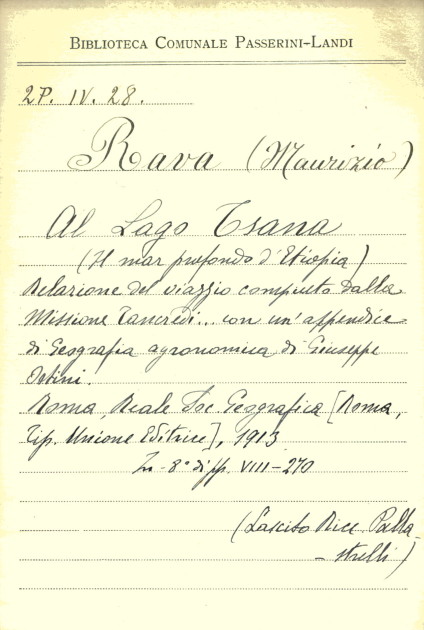 BIBLIOTECA COMUNALE PASSERINI-LANDI
2P. IV. 28.
Rava (Maurizio)
Al Lago Tsana
(Il mar profondo d'Etiopia)
Relazione del viaggio compiuto dalla
Missione Tancredi... con un'appendice
di Geografia agronomica di Giuseppe
Ostini.
Roma, Reale Soc. Geografica [Roma,
Tip. Unione Editrice], 1913
In-8° di pp. VIII-270
(Lascito Ricc. Palla-
-strelli)